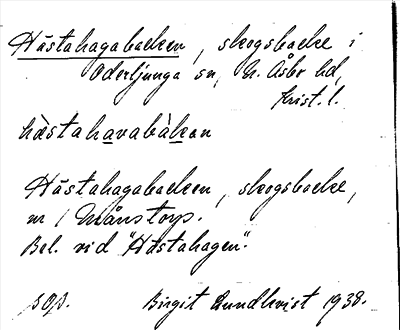 Hästahagabacken, skogsbacke i
Oderljunga sn, N. Åsbo hd,
Krist. l.
hàstahavabàkan
Hästahagabacken, skogsbacke,
nr 1 Månstorp.
Bel. vid "Hästahagen".
sop. Birgit Lundkvist 1938.